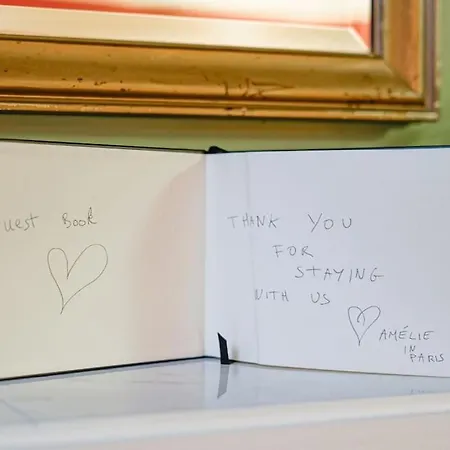 uest Book
THANK YOU
FOR
STAYING
WITH US
AMÉLIE
IN
PARIS